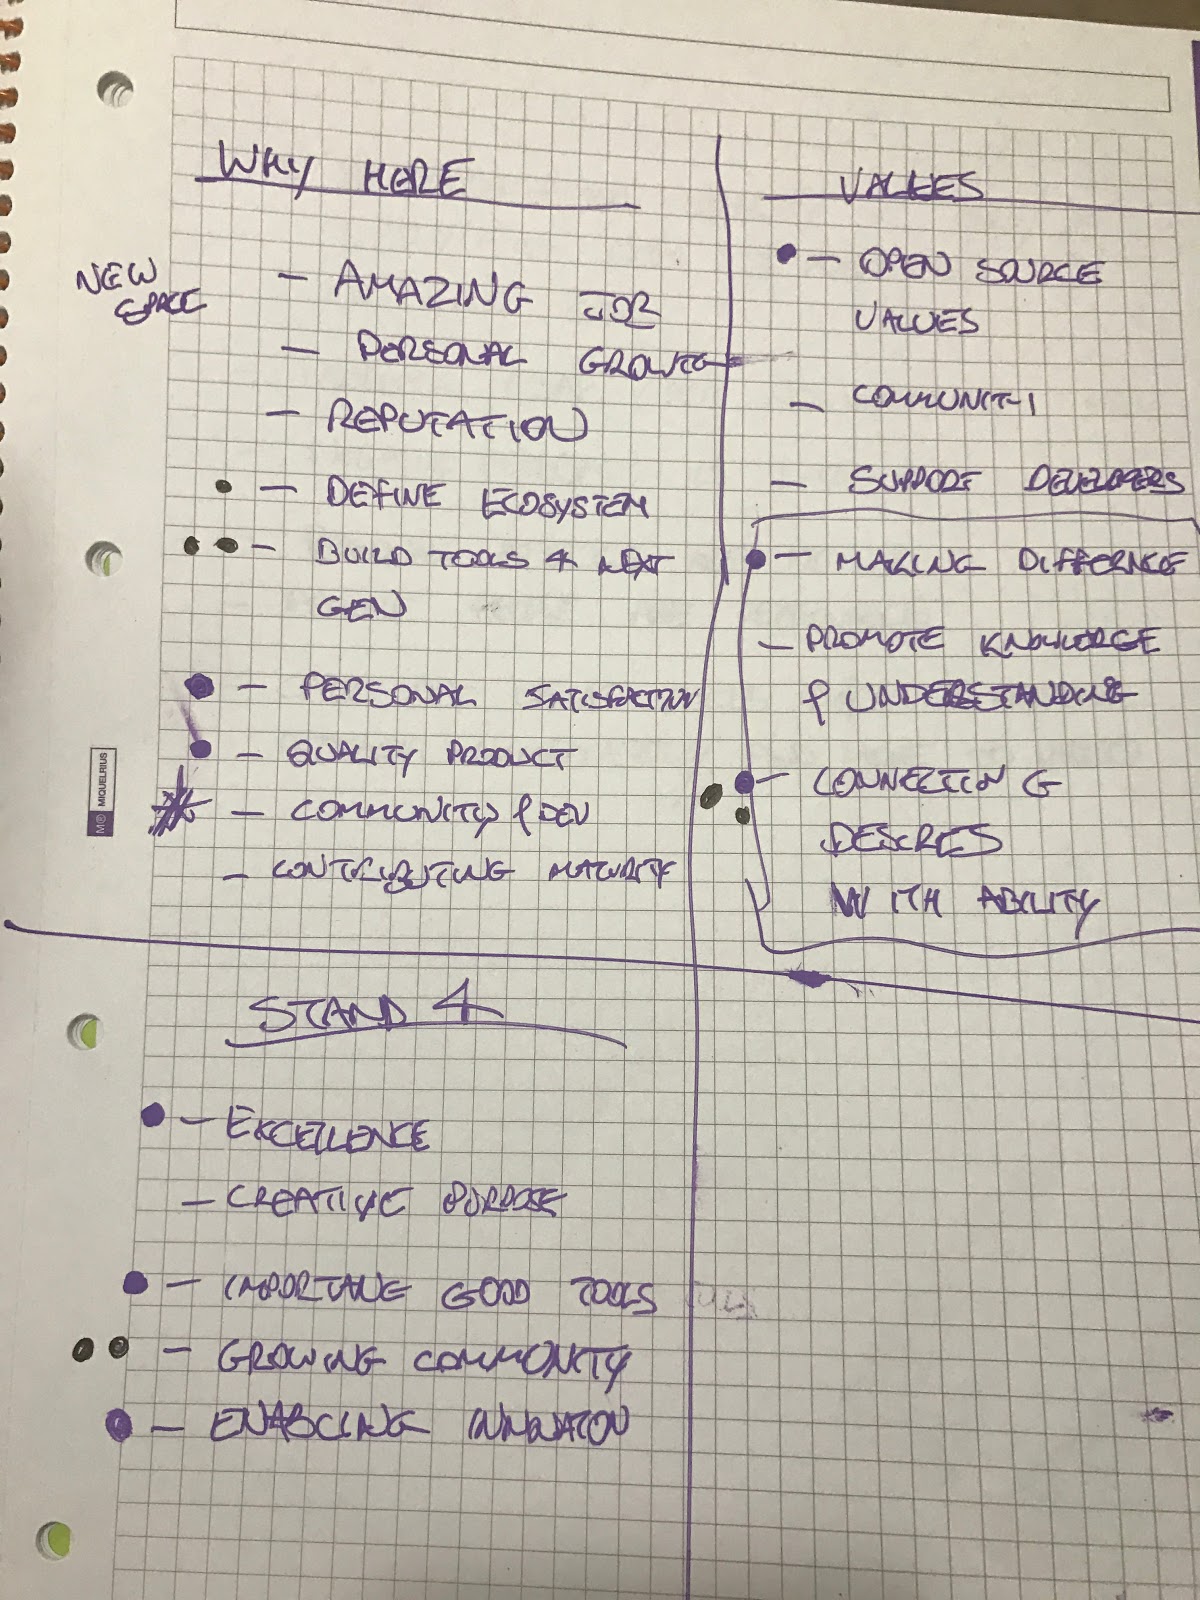 WHY HERE
NEW
SPACE
- AMAZING JOB
- PERSONAL GROWTH
- REPUTATION
• - DEFINE ECOSYSTEM
•• - BUILD TOOLS 4 NEXT
GEN
• - PERSONAL SATISFACTION
• - QUALITY PRODUCT
* - COMMUNITY & DEV
- CONTRIBUTING MATURITY
M® MIQUELRIUS
VALUES
• - OPEN SOURCE
VALUES
- COMMUNITY
- SUPPORT DEVELOPERS
• - MAKING DIFFERNCE
- PROMOTE KNOWLEDGE
& UNDERSTANDING
• - CONNECTING
DESIRES
WITH ABILITY
STAND 4
• - EXCELLENCE
- CREATIVE PURPOSE
• - GOOD TOOLS
•• - GROWING COMMUNITY
• - ENABLING